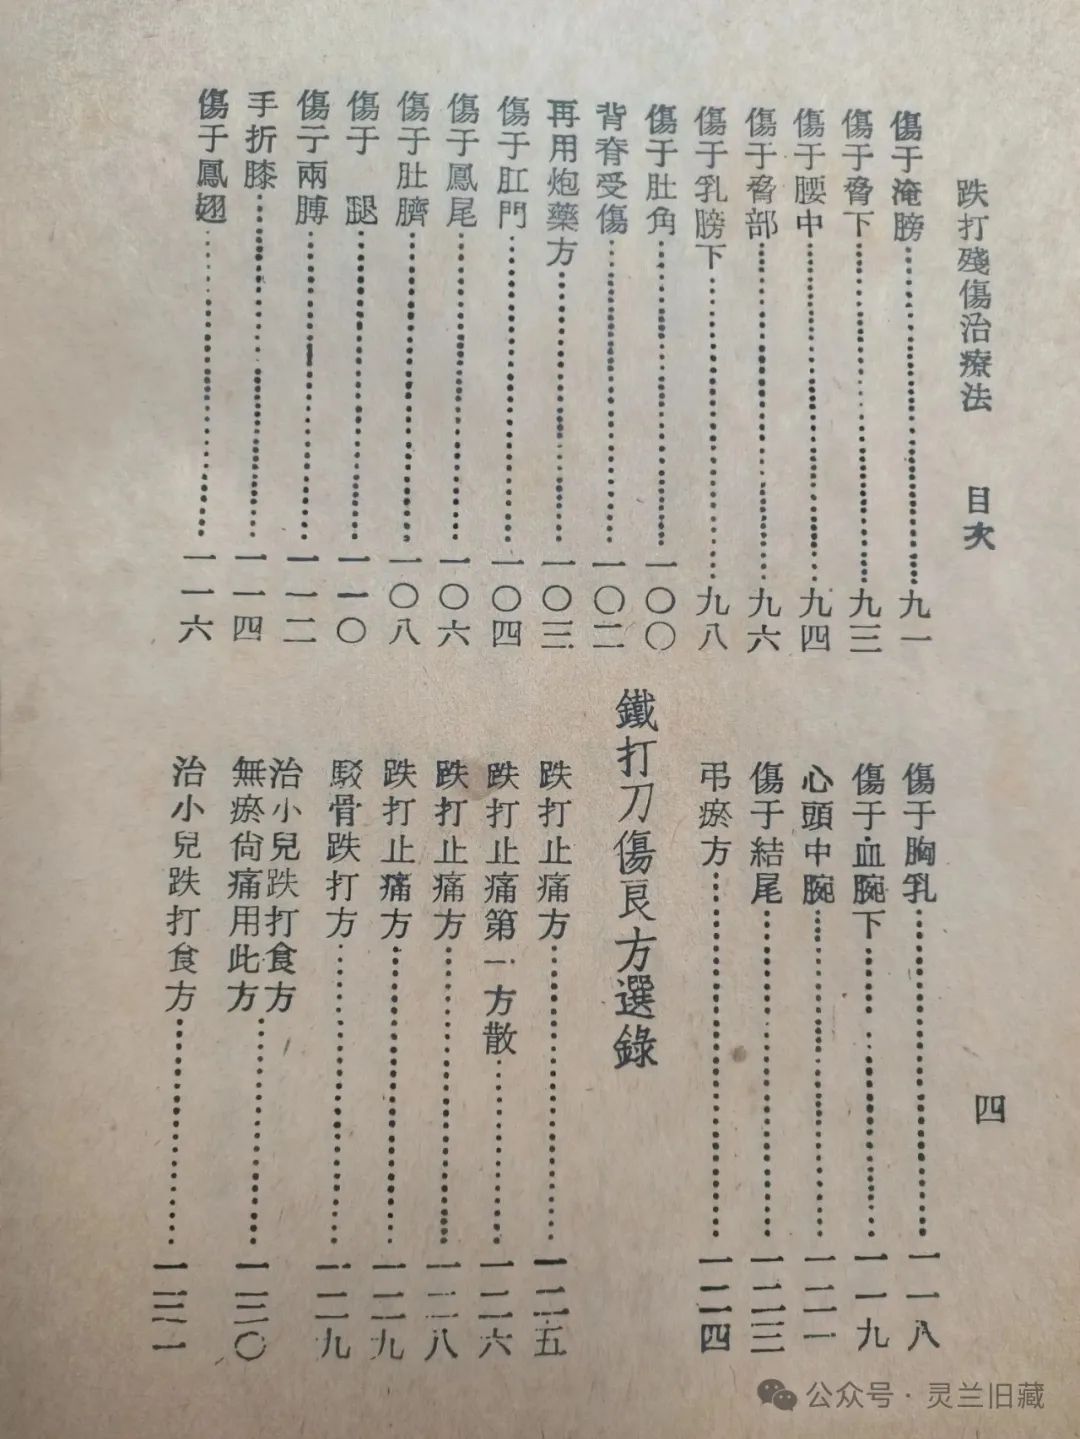 跌打殘傷治療法 目次 四
傷于淹膀……九一
傷于脅下……九三
傷于腰中……九四
傷于脅部……九六
傷于乳膀下……九八
傷于肚角……一〇〇
背脊受傷……一〇二
再用炮藥方……一〇三
傷于肛門……一〇四
傷于鳳尾……一〇六
傷于肚臍……一〇八
傷于 腿……一一〇
傷于兩膊……一一二
手折膝……一一四
傷于鳳翅……一一六
傷于胸乳……一一八
傷于血腕下……一一九
心頭中腕……一二一
傷于結尾……一二三
弔瘀方……一二四
鐵打刀傷良方選錄
跌打止痛方……一二五
跌打止痛第一方散……一二六
跌打止痛方……一二八
跌打止痛方……一二九
駁骨跌打方……一二九
治小兒跌打食方
無瘀尙痛用此方……一三〇
治小兒跌打食方……一三一
公众号·灵兰旧藏